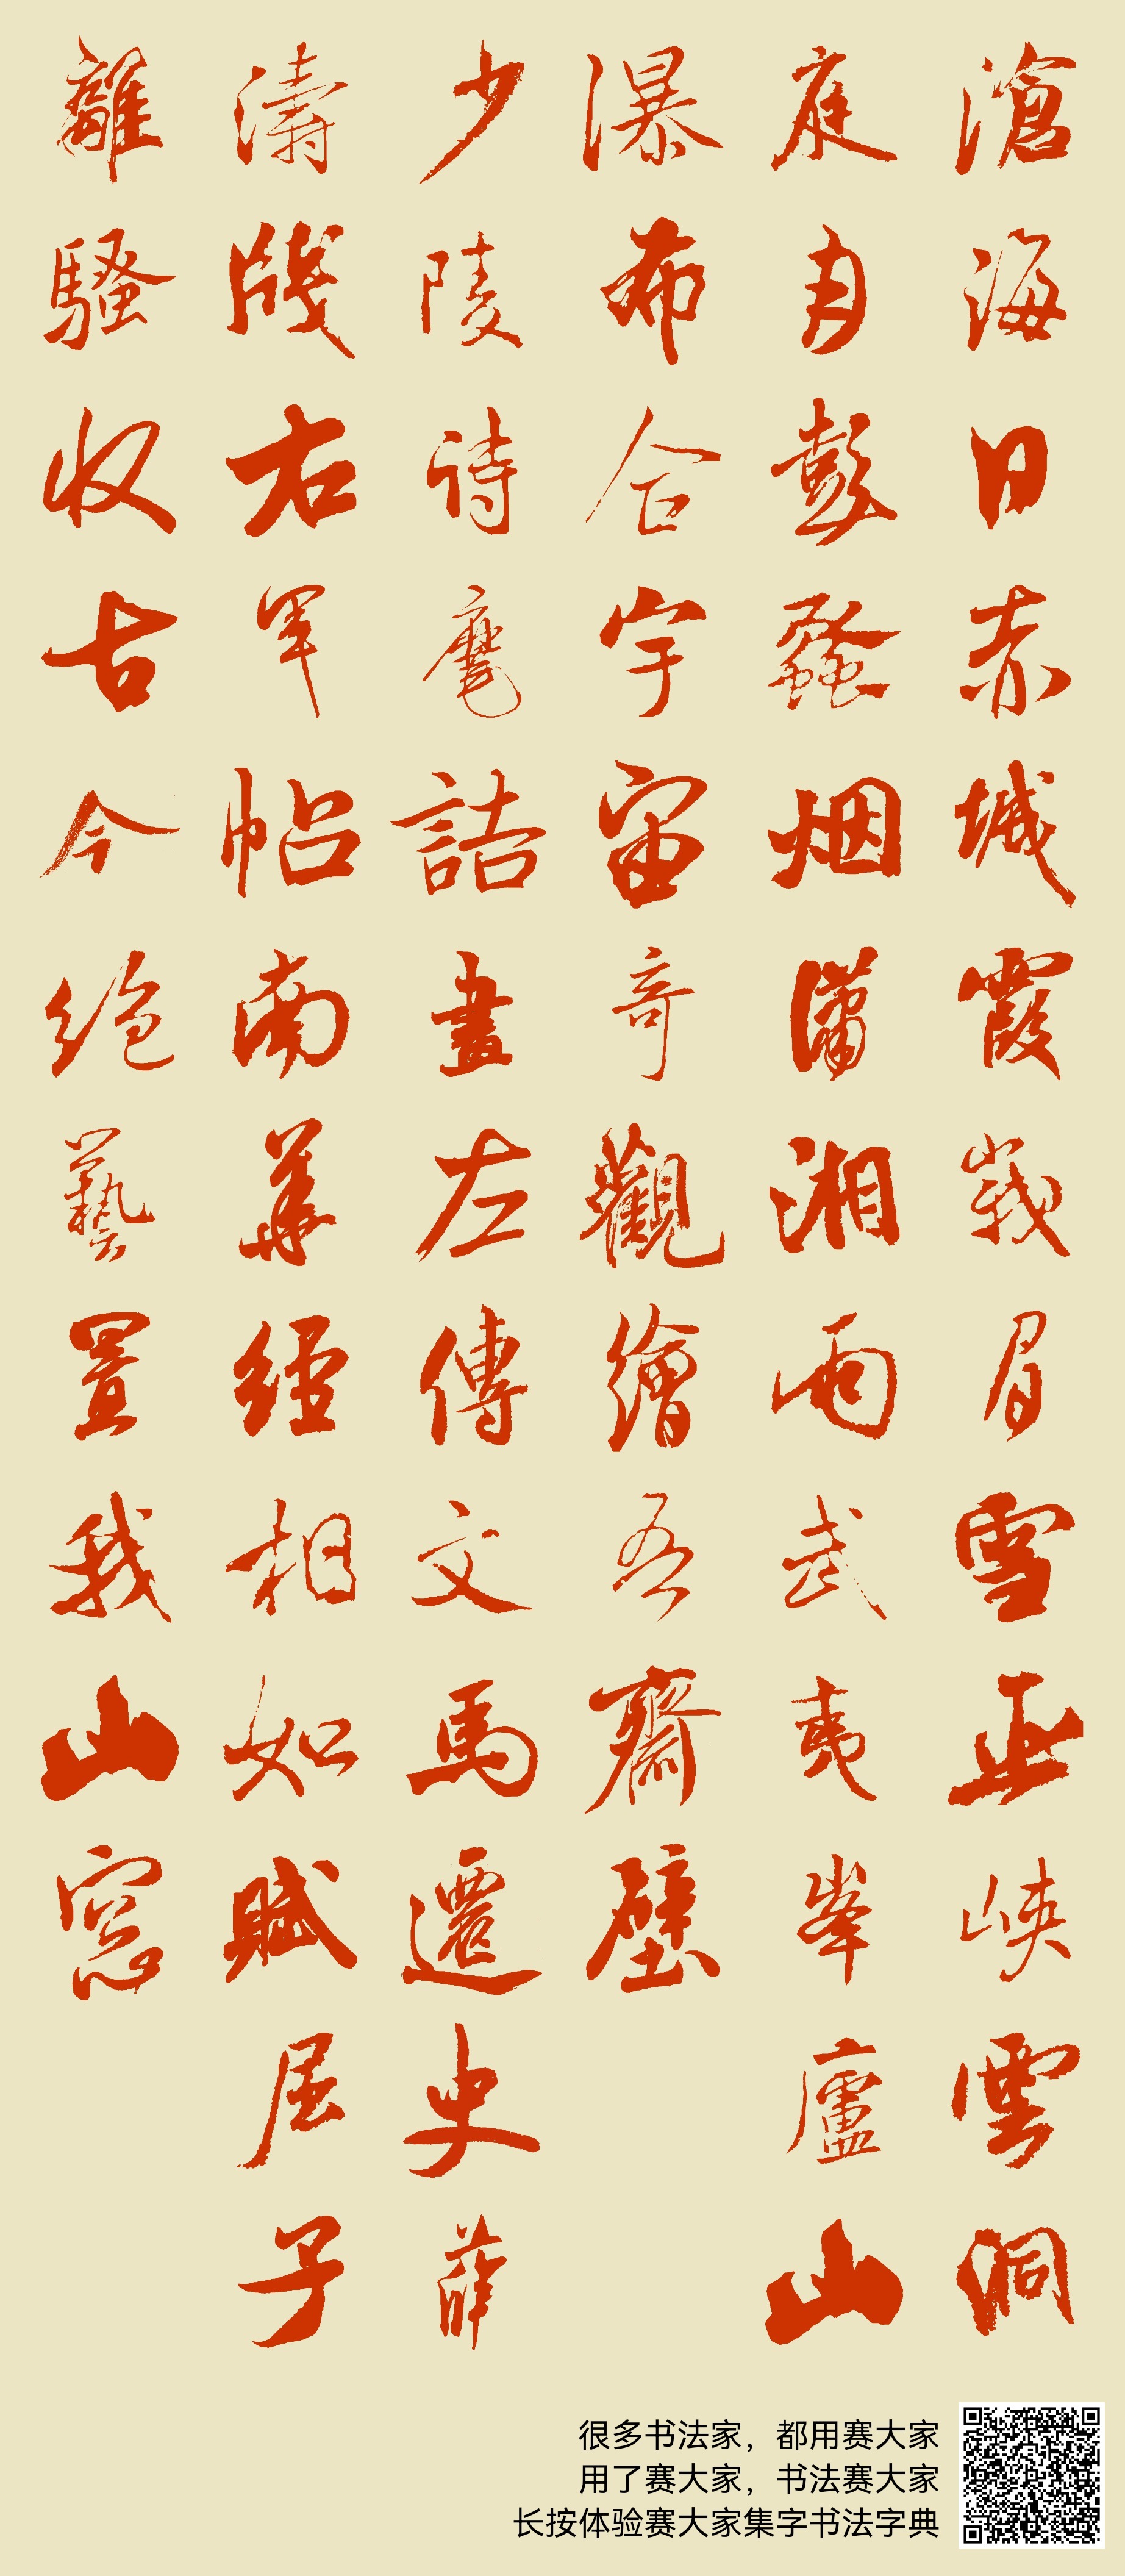 滄海日赤城霞峩眉雪巫峽雲洞
庭月彭蠡烟瀟湘雨武夷峯廬山
瀑布合宇宙奇觀繪吾齋壁
少陵诗摩詰畫左傳文馬遷史薛
濤牋右軍帖南華經相如賦屈子
離騷收古今絶藝置我山窓
很多书法家，都用赛大家
用了赛大家，书法赛大家
长按体验赛大家集字书法字典